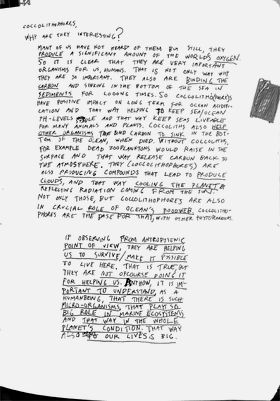 COCCOLITHOPHORES,
WHY ARE THEY INTERESTING?
MANY OF US HAVE NOT HEARD OF THEM BUT STILL, THEY
PRODUCE A SIGNIFICANT AMOUNT OF THE WORLDS OXYGEN.
SO IT IS CLEAR THAT THEY ARE VERY IMPORTANT
ORGANISMS FOR US, HUMANS. THAT IS NOT ONLY WAY WHY
THEY ARE SO IMPORTANT. THEY ALSO ARE BINDING THE
CARBON AND SINKING IN THE BOTTOM OF THE SEA IN
SEDIMENTS FOR LOOONG TIMES. SO COCCOLITHOPHORES
HAVE POSITIVE IMPACT ON LONG TERM FOR OCEAN ACIDIFI-
CATION AND THAT WAY HELPING TO KEEP SEA/OCEAN
PH-LEVELS AND THAT WAY KEEP SEAS LIVEABLE
FOR MANY ANIMALS AND PLANTS. COCCOLITHS ALSO HELP
OTHER ORGANISMS THAT BIND CARBON TO SINK IN THE BOT-
TOM OF THE OCEAN, WHEN DEAD. WITHOUT COCCOLITHS,
FOR EXAMPLE DEAD ZOOPLANKTONS WOULD RAISE IN THE
SURFACE AND THAT WAY RELEASE CARBON BACK TO
THE ATMOSPHERE. THEY (COCCOLITHOPHORES) ARE
ALSO PRODUCING COMPOUNDS THAT LEAD TO PRODUCE
CLOUDS, AND THAT WAY COOLING THE PLANET &
REFLECTING RADIATION COMING FROM THE SUN.
NOT ONLY THOSE, BUT COCCOLITHOPHORES ARE ALSO
IN CRUCIAL ROLE OF OCEAN'S FOODWEB. COCCOLITHO-
PHORES ARE THE BASE FOR THAT, WITH OTHER PHYTOPLANKTONS.
IF OBSERVING FROM ANTROPOGENIC
POINT OF VIEW, THEY ARE HELPING
US TO SURVIVE / MAKE IT POSSIBLE
TO LIVE HERE, THAT IS TRUE, BUT
THEY ARE NOT OFCOURSE DOING IT
FOR HELPING US. ANYHOW, IT IS IM-
PORTANT TO UNDERSTAND, AS A
HUMANBEING, THAT THERE IS SUCH
MICRO-ORGANISMS, THAT PLAY SO
BIG ROLE IN MARINE ECOSYSTEMS
AND THAT WAY IN THE WHOLE
PLANET'S CONDITION. THAT WAY
ALSO OUR LIVES IS BIG.